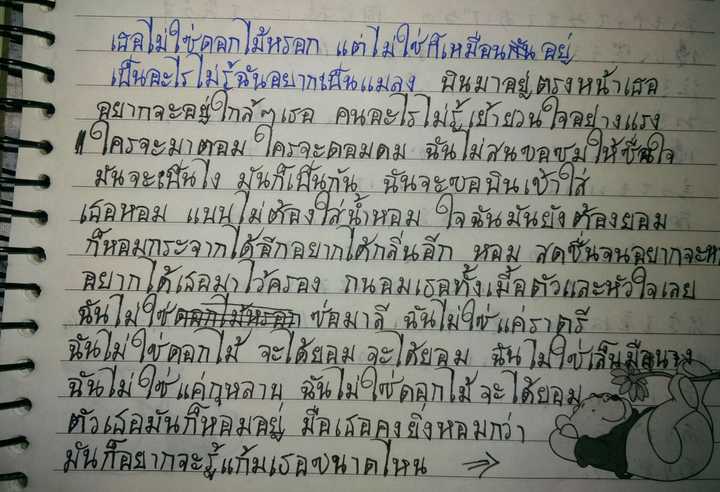 เธอไม่ใช่ดอกไม้หรอก แต่ไม่ใช่ก็เหมือนกันอยู่
เป็นอะไรไม่รู้ฉันอยากเป็นแมลง บินมาอยู่ตรงหน้าเธอ
อยากจะอยู่ใกล้ๆเธอ คนอะไรไม่รู้เย้ายวนใจอย่างแรง
ใครจะมาตอม ใครจะดอมดม ฉันไม่สนขอชมให้ชื่นใจ
มันจะเป็นไง มันก็เป็นกัน ฉันจะขอบินเข้าใส่
เธอหอม แบบไม่ต้องใส่น้ำหอม ใจฉันมันยังต้องยอม
ก็หอมกระจากได้อีกอยากได้กลิ่นอีก หอม สดชื่นจนอยากจะห
อยากได้เธอมาไว้ครอง ถนอมเธอทั้งเนื้อตัวและหัวใจเลย
ฉันไม่ใช่ดอกไม้หรอก ช่อมาลี ฉันไม่ใช่แค่ราตรี
ฉันไม่ใช่ดอกไม้ จะได้ยอม จะได้ยอม ฉันไม่ใช่เล็บมือนาง
ฉันไม่ใช่แค่กุหลาบ ฉันไม่ใช่ดอกไม้ จะได้ยอม
ตัวเธอมันก็หอมอยู่ มือเธอคงยิ่งหอมกว่า
มันก็อยากจะรู้แก้มเธอขนาดไหน ⇒